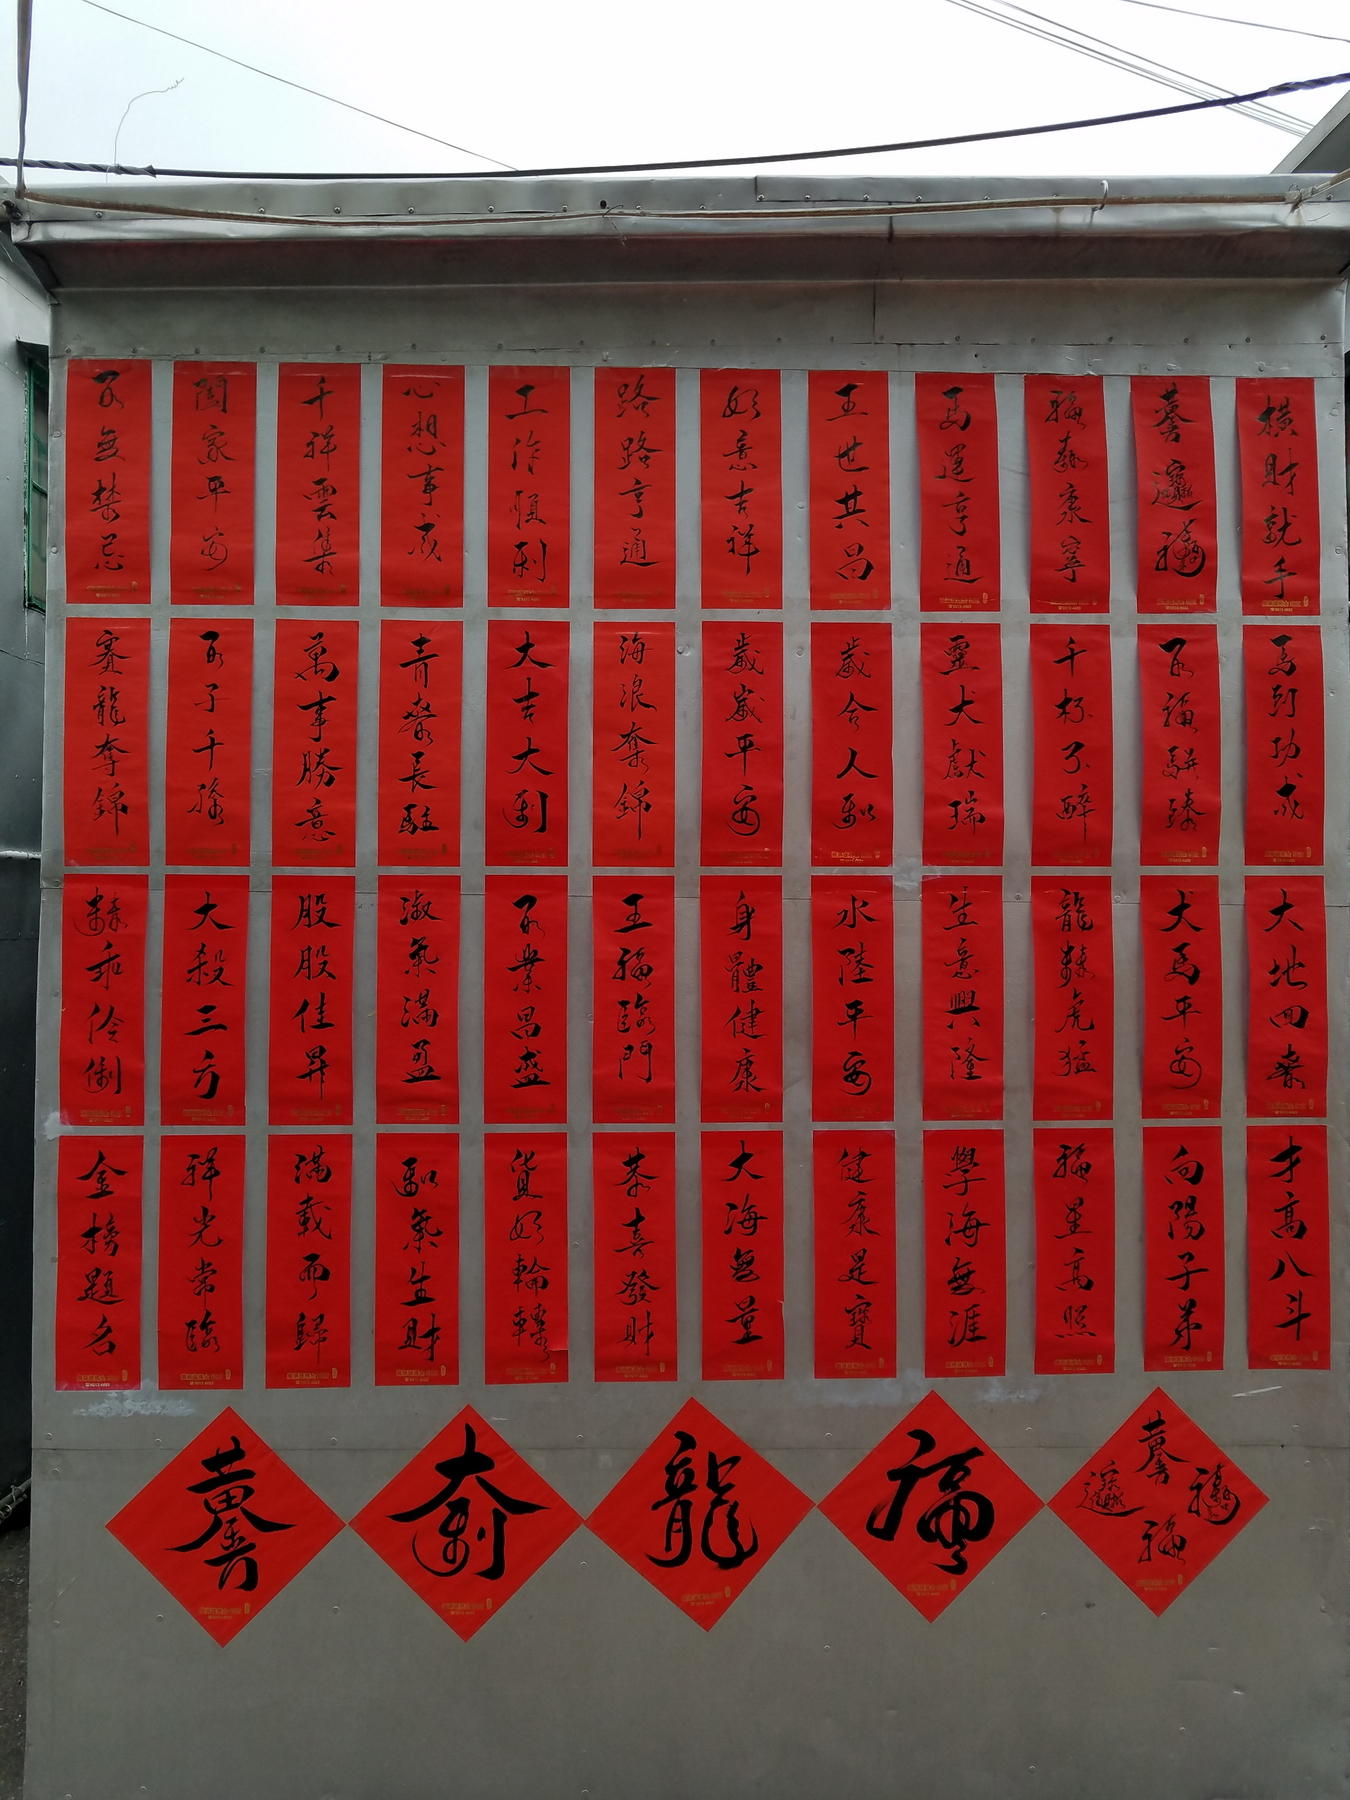 百無禁忌
闔家平安
千祥雲集
心想事成
工作順利
路路亨通
如意吉祥
五世其昌
馬運亨通
福泰康寧
橫財就手
賽龍奪錦
百子千孫
萬事勝意
青春長駐
大吉大利
海浪奪錦
歲歲平安
歲合人和
靈犬獻瑞
千杯不醉
百福駢臻
馬到功成
乖伶俐
大殺三方
股股佳昇
淑氣滿盈
百業昌盛
五福臨門
身體健康
水陸平安
生意興隆
龍精虎猛
犬馬平安
大地回春
金榜題名
祥光常臨
滿載而歸
和氣生財
貨如輪轉
恭喜發財
大海無量
健康是寶
學海無涯
福星高照
向陽子弟
才高八斗
龍
福